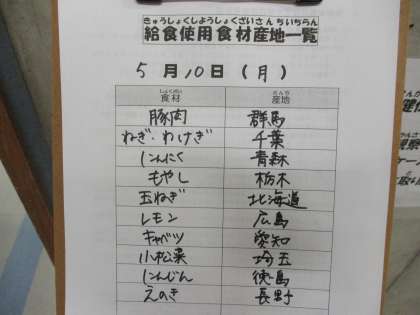 きゅうしょくしようしょくざいさんちいちらん
給食使用食材産地一覧
5月10日(月)
しょくざい さんち
食材 産地
豚肉 群馬
ねぎ・わけぎ 千葉
にんにく 青森
もやし 栃木
玉ねぎ 北海道
レモン 広島
キャベツ 愛知
小松菜 埼玉
にんじん 徳島
えのき 長野